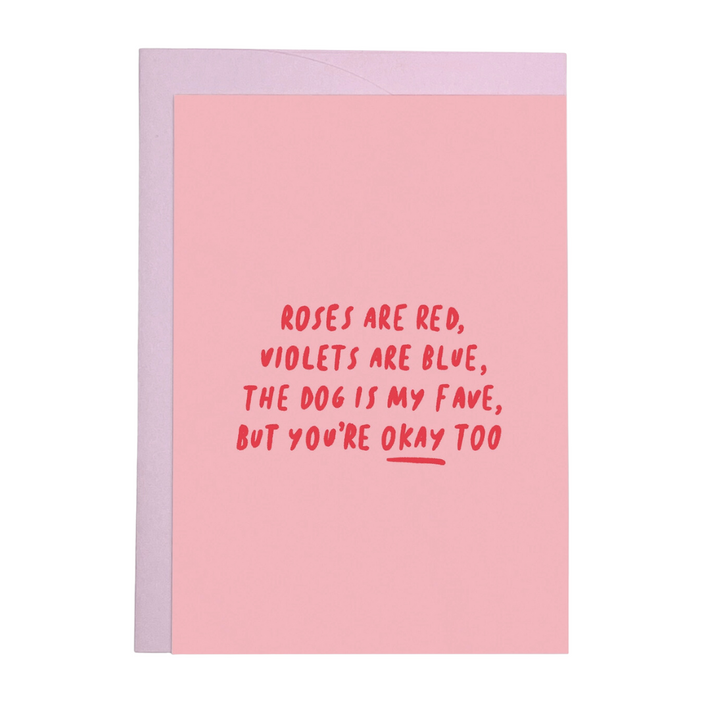 ROSES ARE RED,
VIOLETS ARE BLUE,
THE DOG IS MY FAVE,
BUT YOU'RE OKAY TOO